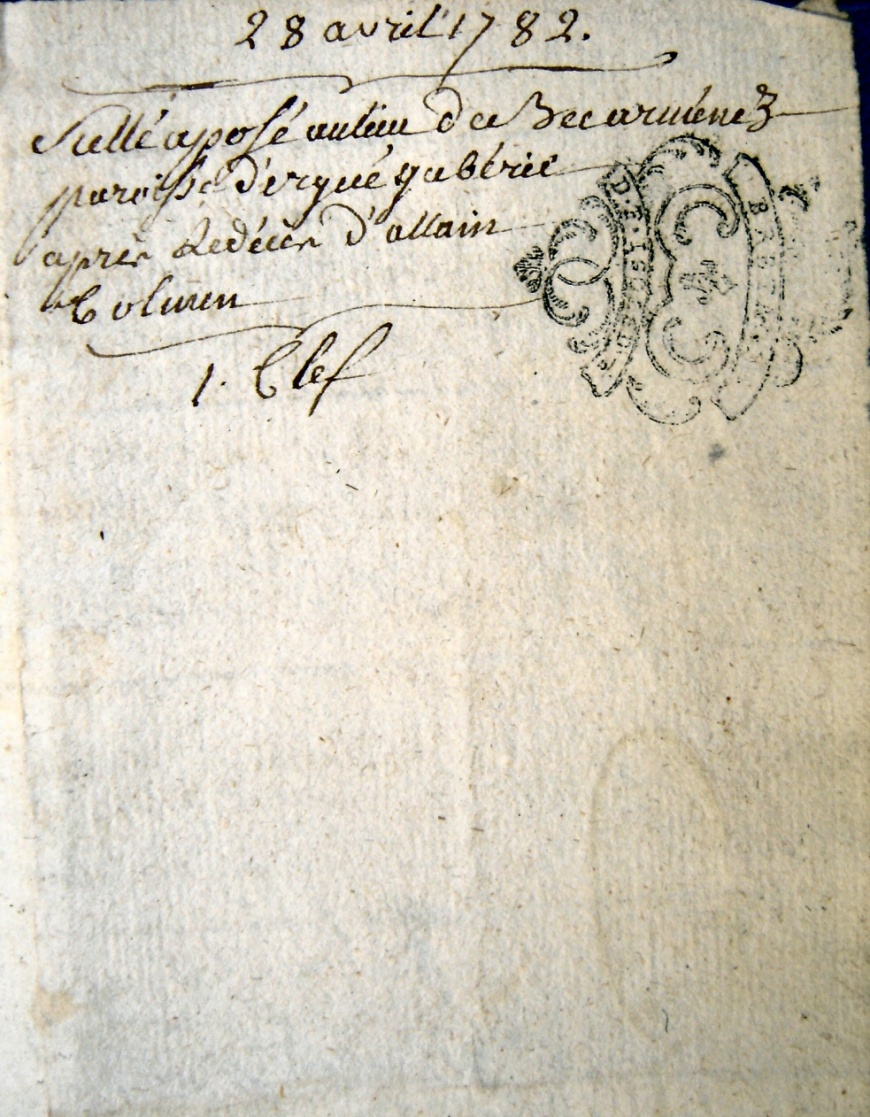 28 avril 1782.
Scellé aposé aulieu de Becarménez
paroisse d'ergué gabéric
après Ledécès d'allain
Coluen
1. Clef